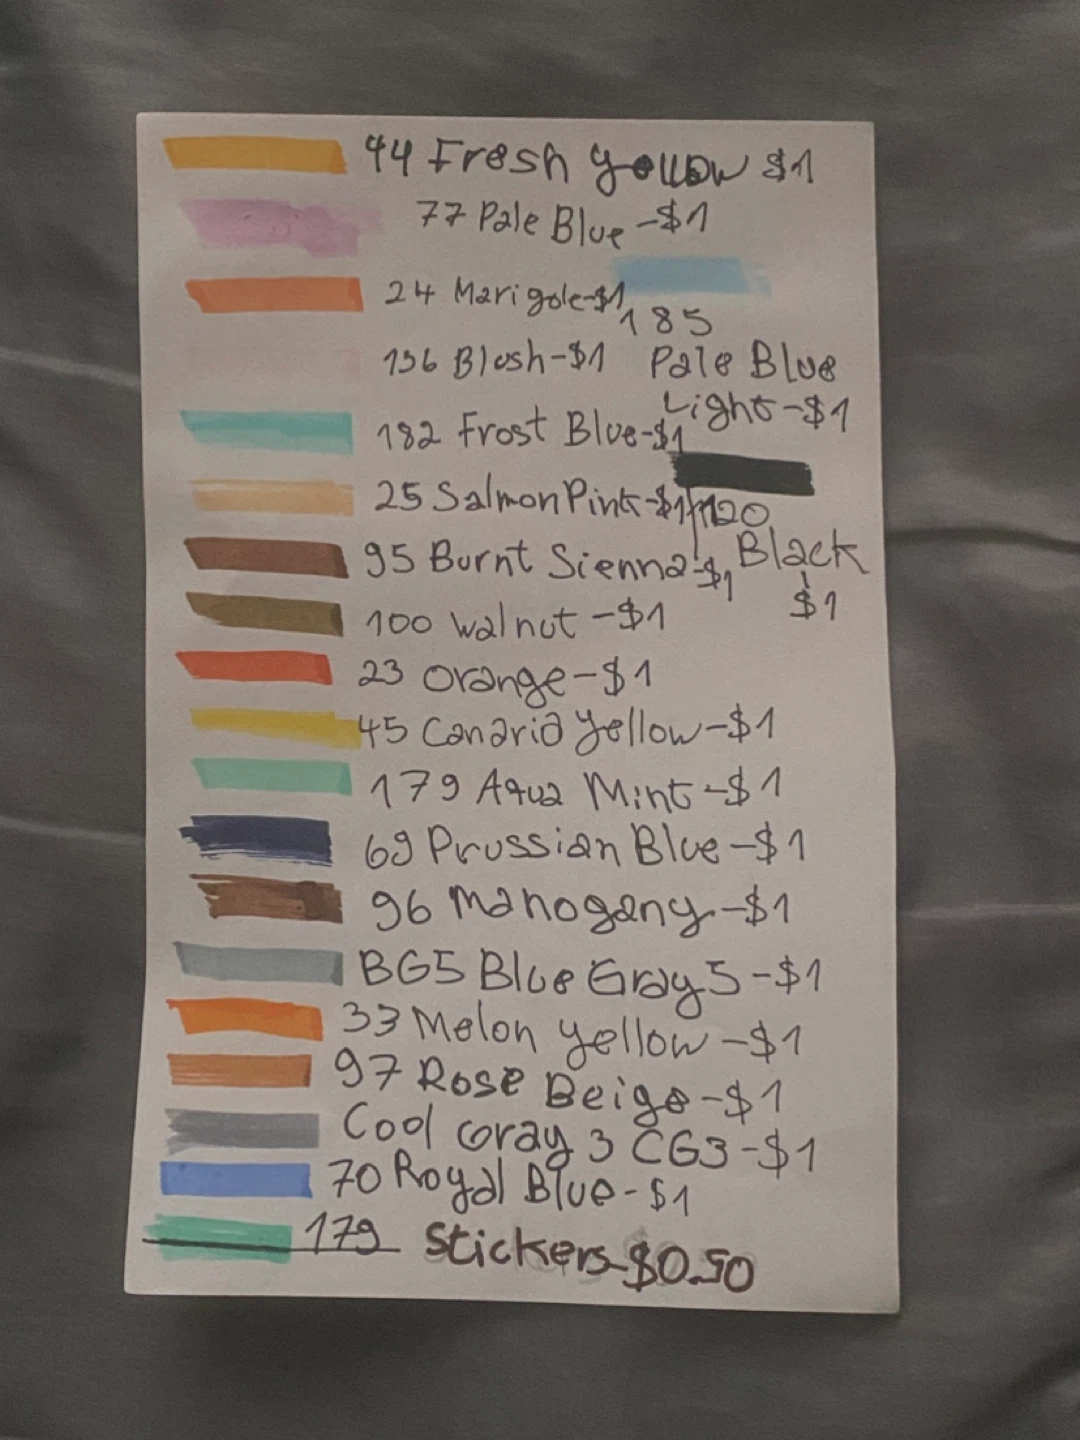 44 Fresh yellow $1
77 Pale Blue -$1
24 Marigole-$1
185
Pale Blue
Light-$1
136 Blush-$1
182 Frost Blue-$1
25 Salmon Pink-$1
120
Black
$1
95 Burnt Sienna-$1
100 Walnut -$1
23 Orange-$1
45 Canaria yellow-$1
179 Aqua Mint-$1
69 Prussian Blue-$1
96 Mahogany-$1
BG5 Blue Gray 5-$1
33 Melon yellow-$1
97 Rose Beige-$1
Cool Gray 3 CG3-$1
70 Royal Blue-$1
179 Stickers-$0.50